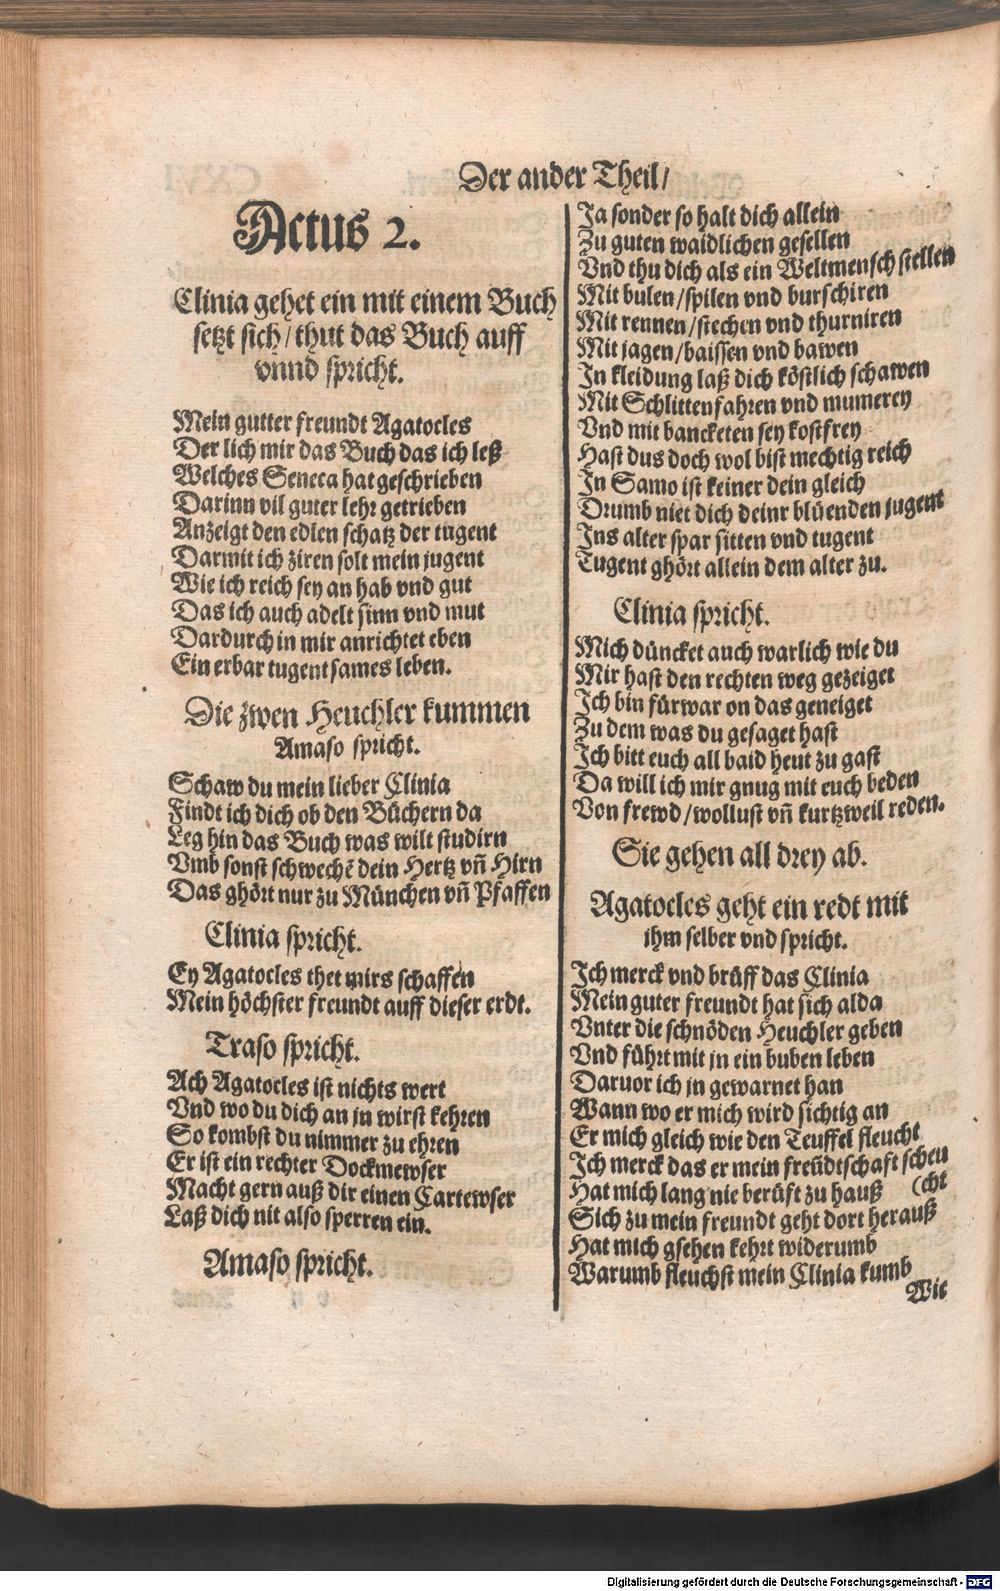 Der ander Theil/
Actus 2.
Clinia gehet ein mit einem Buch
setzt sich/ thut das Buch auff
vnnd spricht.
Mein gutter freundt Agatocles
Der lich mir das Buch das ich leß
Welches Seneca hat geschrieben
Darinn vil guter lehr getrieben
Anzeigt den edlen schatz der tugent
Darmit ich ziren solt mein jugent
Wie ich reich sey an hab vnd gut
Das ich auch adelt sinn vnd mut
Dardurch in mir anrichtet eben
Ein erbar tugentsames leben.
Die zwen Heuchler kummen
Amaso spricht.
Schaw du mein lieber Clinia
Findt ich dich ob den Büchern da
Leg hin das Buch was wilt studirn
Vmb sonst schwechē dein Hertz vñ Hirn
Das ghört nur zu München vñ Pfaffen
Clinia spricht.
Ey Agatocles thet mirs schaffen
Mein höchster freundt auff dieser erdt.
Traso spricht.
Ach Agatocles ist nichts wert
Vnd wo du dich an jn wirst kehren
So kombst du nimmer zu ehren
Er ist ein rechter Dockmewser
Macht gern auß dir einen Cartewser
Laß dich nit also sperren ein.
Amaso spricht.
Ja sonder so halt dich allein
Zu guten waidlichen gesellen
Vnd thu dich als ein Weltmensch stellen
Mit bulen/spilen vnd burschiren
Mit rennen/stechen vnd thurniren
Mit jagen/baissen vnd bawen
In kleidung laß dich köstlich schawen
Mit Schlittenfahren vnd mumerey
Vnd mit bancketen sey kostfrey
Hast dus doch wol bist mechtig reich
In Samo ist keiner dein gleich
Drumb niet dich deinr blüenden jugent
Ins alter spar sitten vnd tugent
Tugent ghört allein dem alter zu.
Clinia spricht.
Mich düncket auch warlich wie du
Mir hast den rechten weg gezeiget
Ich bin fürwar on das geneiget
Zu dem was du gesaget hast
Ich bitt euch all baid heut zu gast
Da will ich mir gnug mit euch beden
Von frewd/wollust vñ kurtzweil reden.
Sie gehen all drey ab.
Agatocles geht ein redt mit
ihm selber vnd spricht.
Ich merck vnd brüff das Clinia
Mein guter freundt hat sich alda
Vnter die schnöden Heuchler geben
Vnd führt mit jn ein buben leben
Daruor ich jn gewarnet han
Wann wo er mich wird sichtig an
Er mich gleich wie den Teuffel fleucht
Ich merck das er mein freūdtschaft scheu
Hat mich lang nie berüft zu hauß (cht
Sich zu mein freundt geht dort herauß
Hat mich gsehen kehrt widerumb
Warumb fleuchst mein Clinia kumb
Wie
Digitalisierung gefördert durch die Deutsche Forschungsgemeinschaft - DFG